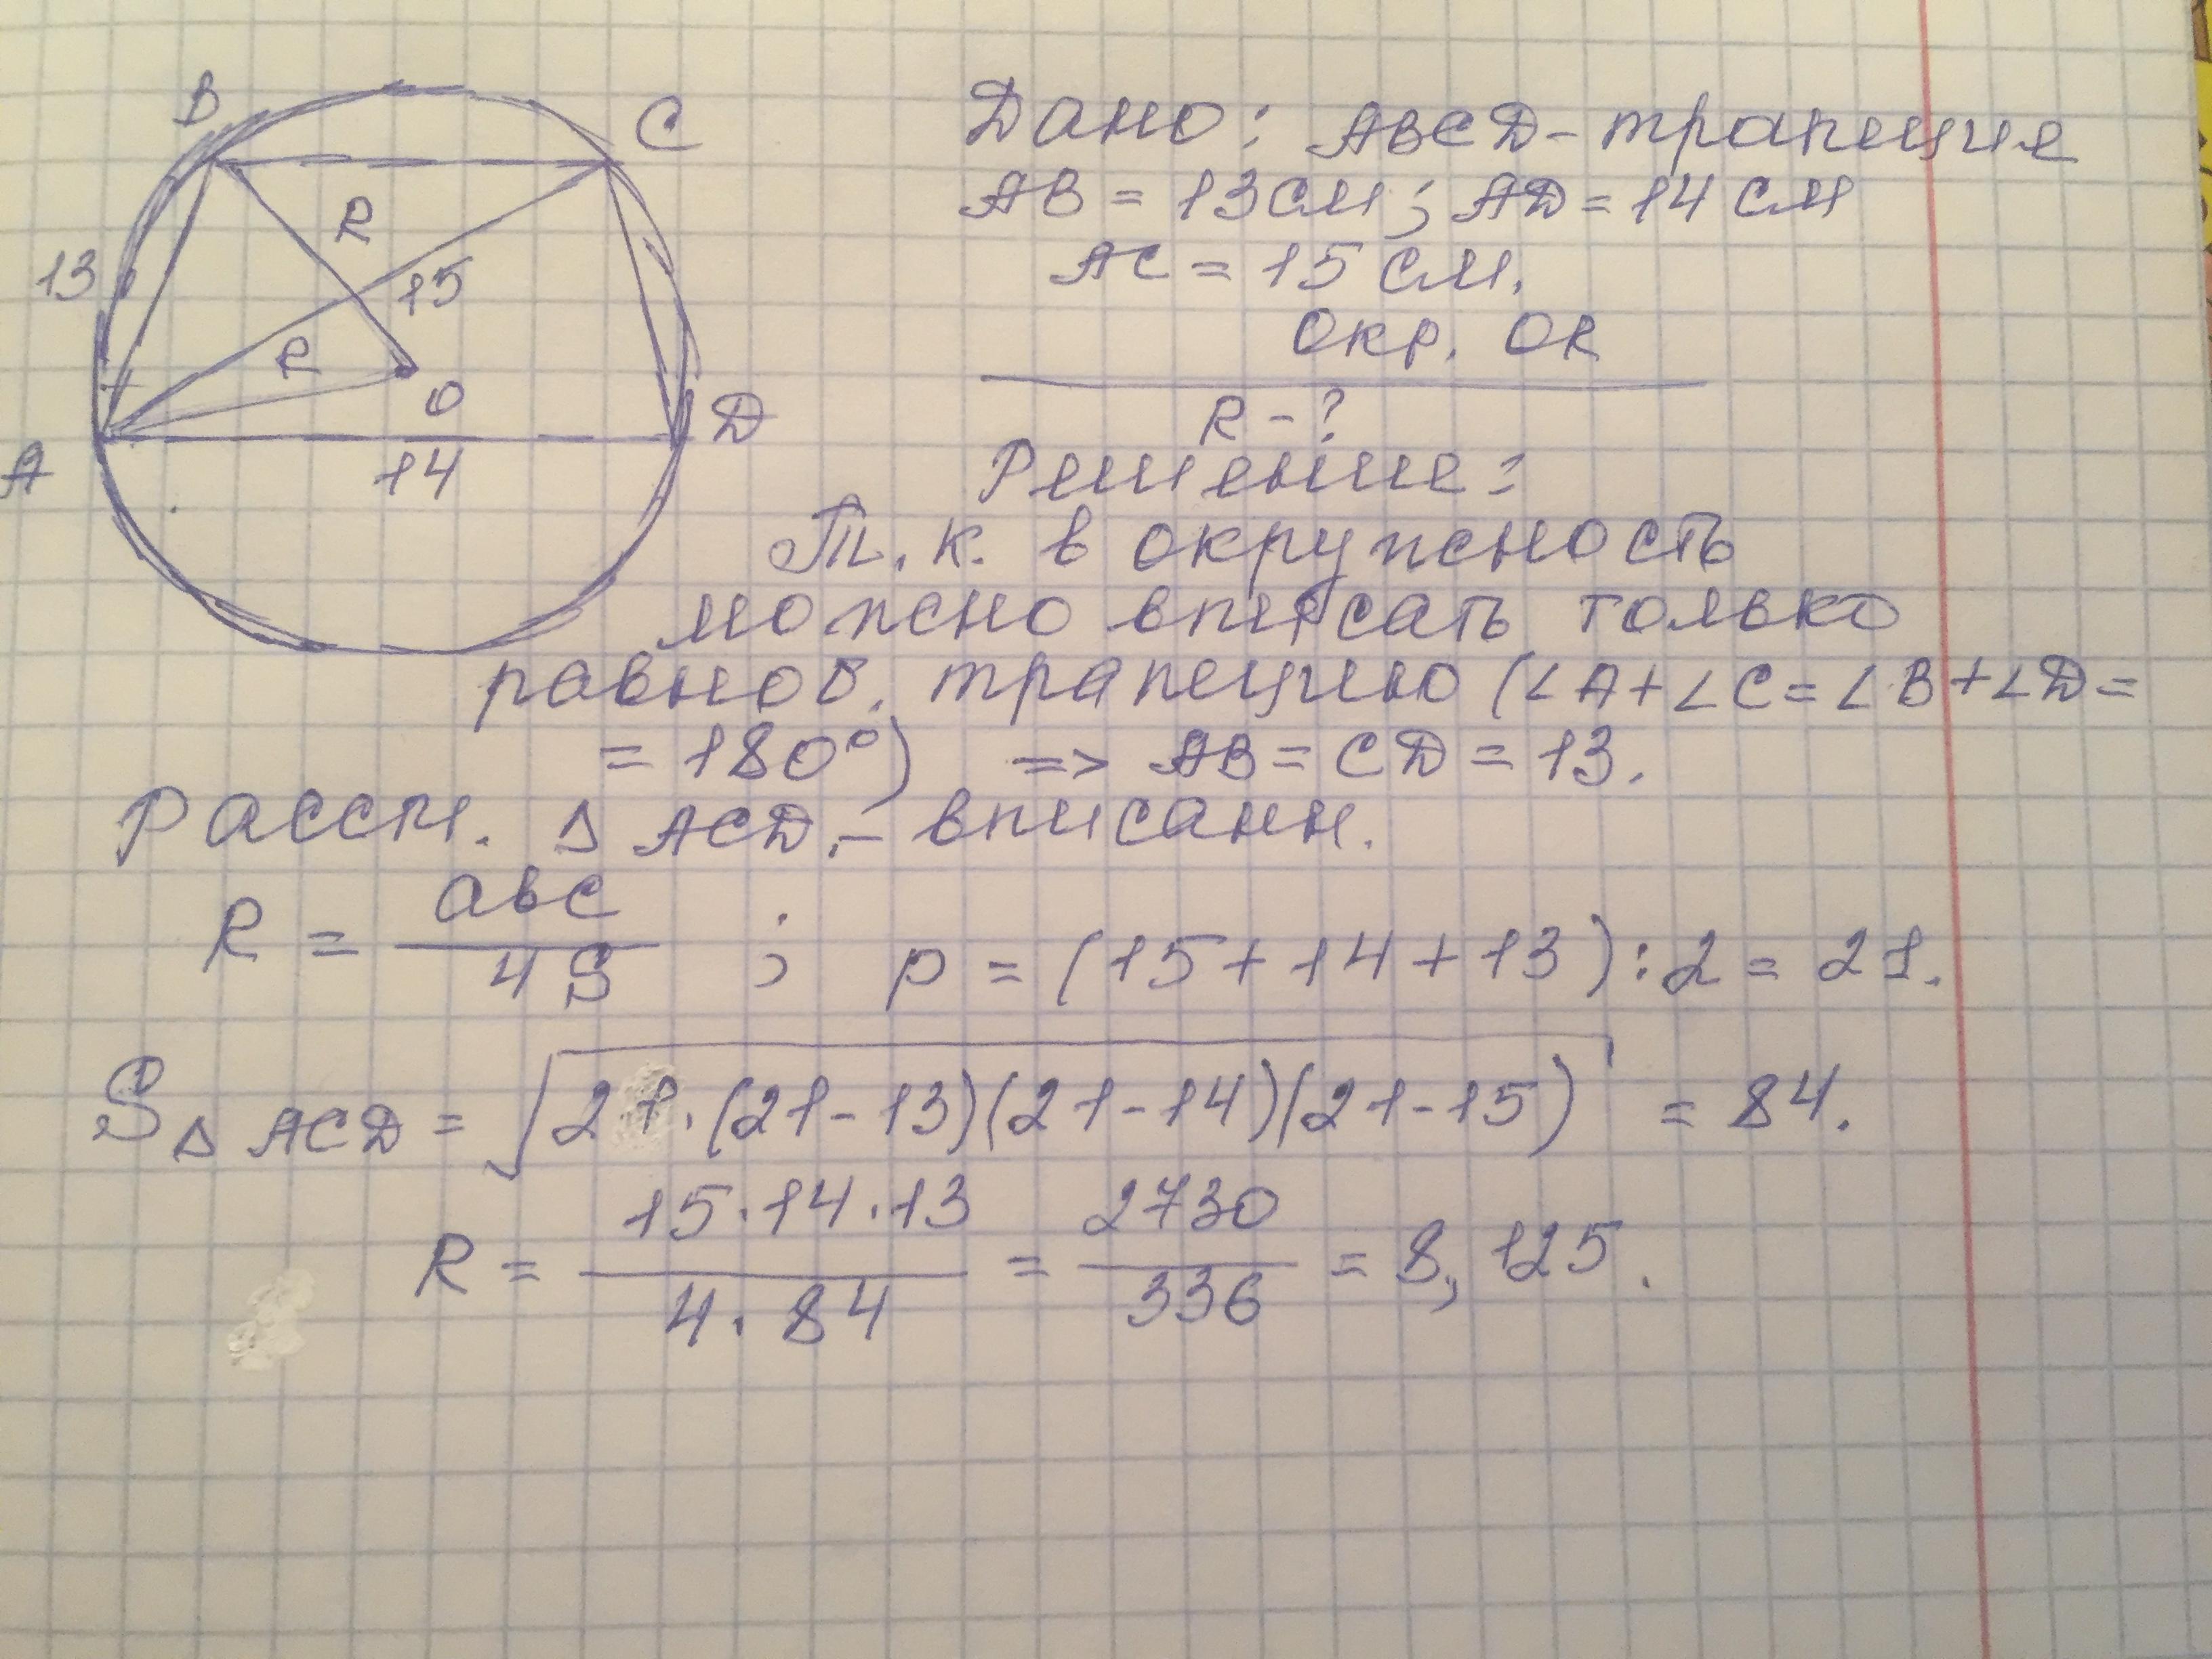 B
C
13
R
15
R
O
A
14
D
Дано: ABCD - трапеция
AB = 13 см; AD = 14 см
AC = 15 см.
Окр. OR
R - ?
Решение:
Т.к. в окружность
можно вписать только
равноб. трапецию (∠A+∠C=∠B+∠D=
= 180°) => AB = CD = 13.
Рассм. Δ ACD, - вписанн.
R = abc / 4S ; p = (15+14+13):2 = 21.
S Δ ACD = √21·(21-13)(21-14)(21-15) = 84.
R = 15·14·13 / 4·84 = 2730 / 336 = 8,125.